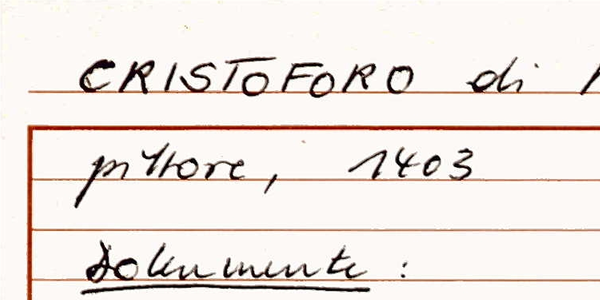 CRISTOFORO di
pittore, 1403
Dokumente :